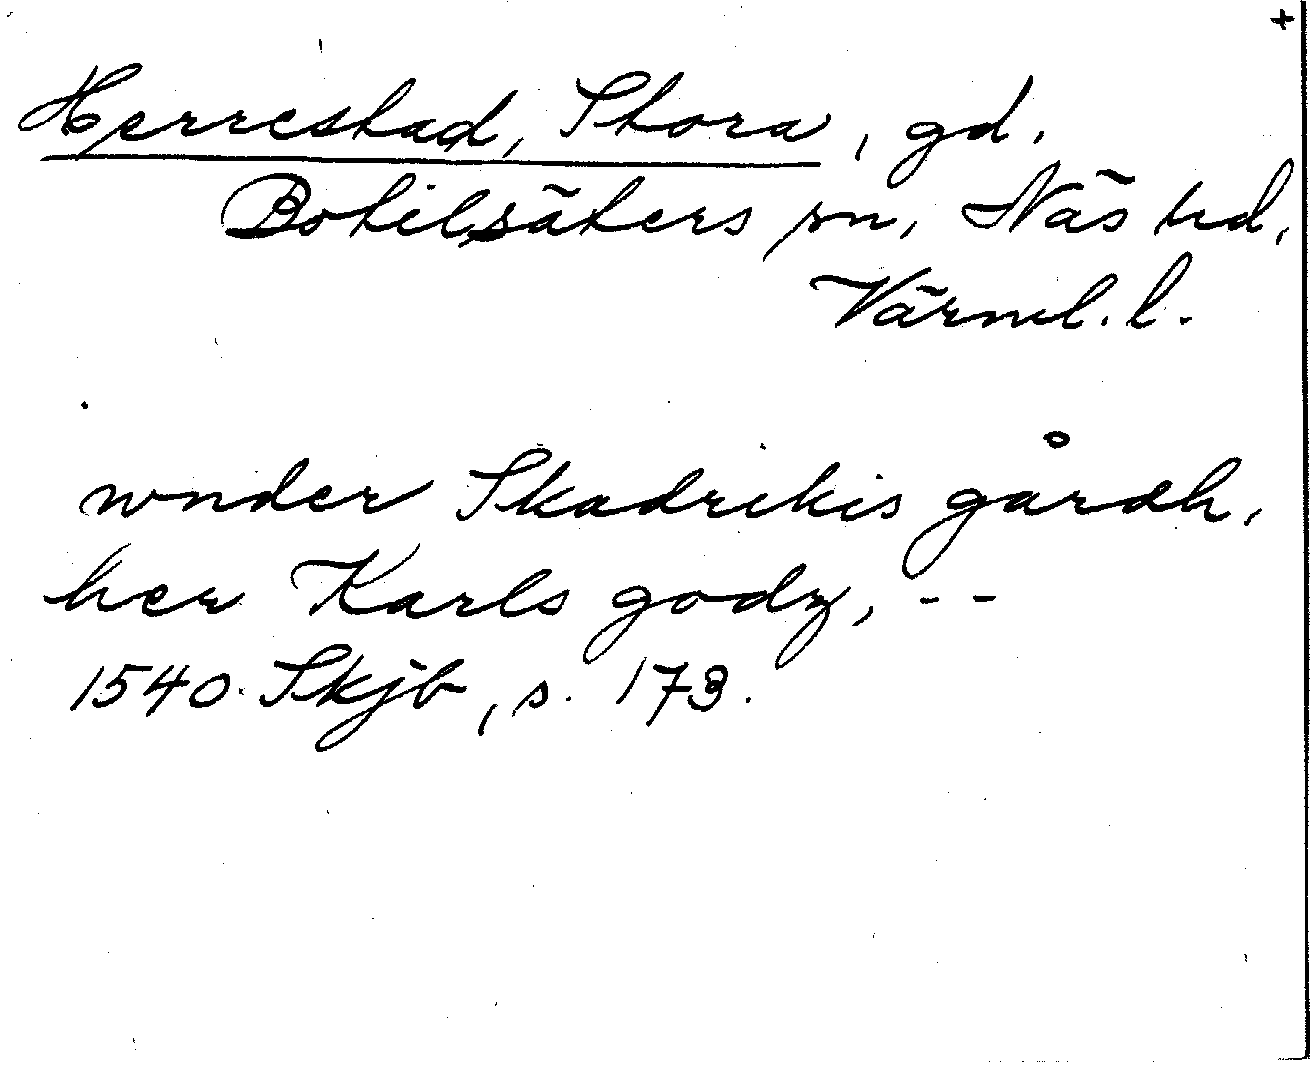 +
Herrestad, Stora, gd.
Botilsäters sn, Näs hd,
Värml. l.
wnder Skadrekis gårdh,
her Karls godz, - -
1540. Skjb, s. 173.